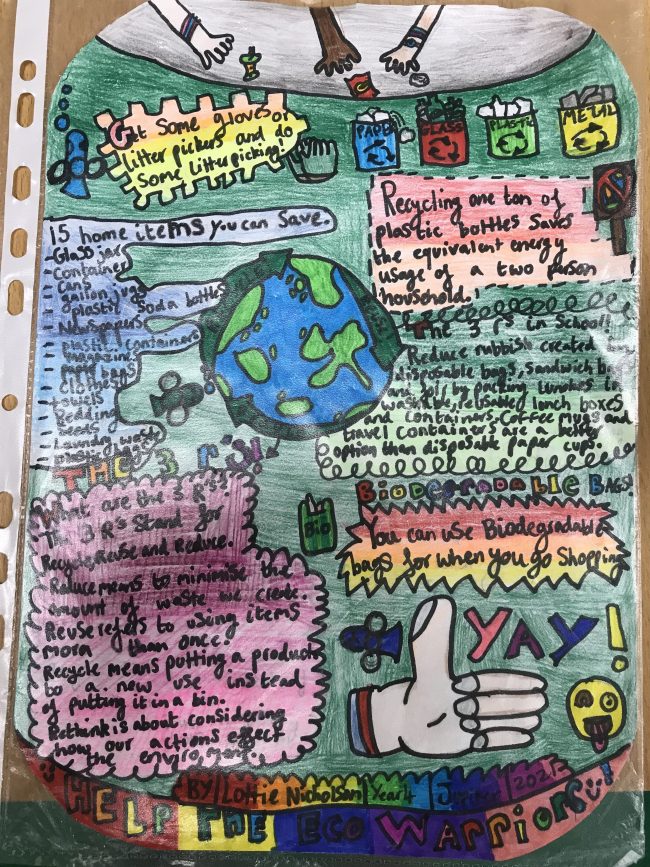 Get Some gloves or
litter pickers and do
Some Litterpicking!
PAPER
GLASS
PLASTIC
METAL
Recycling one ton of
plastic bottles saves
the equivalent energy
usage of a two person
household.
15 home items you can save.
-Glass jar
container
cans
gallon jugs
plastic soda bottles
Newspapers
plastic containers
magazines
paper bags
clothes
towels
Bedding
Beads
Laundry wash
The 3 r's in School!
Reduce rubbish created by
disposable bags, sandwich bags
and foil by packing lunches in
washable, reusable lunch boxes
and containers. Coffee mugs and
travel containers are a better
option than disposable paper cups.
THE 3 r's!
What are the 3 R's?
The 3 R's Stand for
Recycle, Reuse and Reduce.
Reduce means to minimise the
amount of waste we create.
Reuse refers to using items
mora than once.
Recycle means putting a product
to a new use instead
of putting it in a bin.
Rethink is about considering
how our actions effect
the enviroment.
BIO
Biodegradable BAGS!
You can use Biodegradable
bags for when you go Shopping
YAY!
BY Lottie Nicholson Year 4 Juniper 2021
HELP THE ECO WARRIORS!